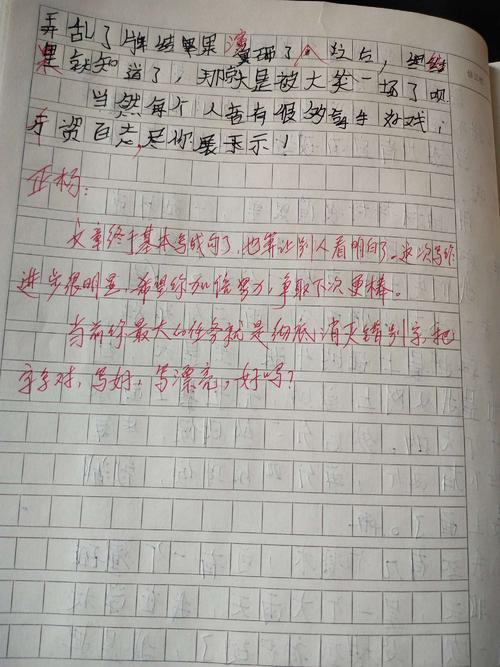 弄乱了牌结果演 了人 拉点,结
果就知道了,那就是被大笑一场了呗
当然每个人都有很多拿手好戏,
手 百态,尽你展示!
正杨:
文章终于基本写成句了,也算让别人看明白了。这次写作
进步很明显,希望你加倍努力,争取下次更棒。
当前你最大的任务就是彻底消灭错别字,把
字写对,写好,写漂亮,好吗?